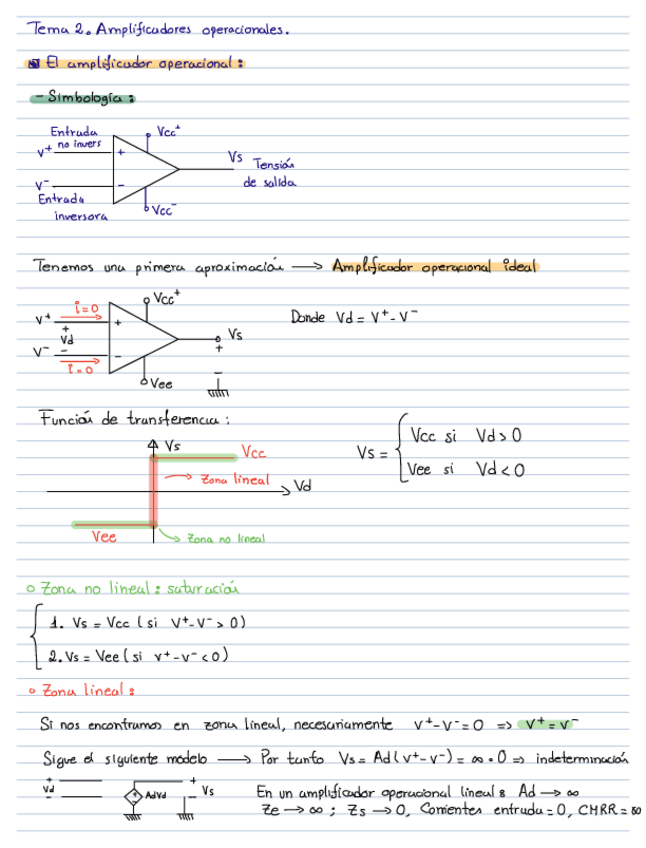 Tema 2. Amplificadores operacionales.
El amplificador operacional:
- Simbología:
Entrada no invers
V+
+
Vcc+
Vs
Tensión de salida
V-
-
Entrada inversora
Vcc-
Tenemos una primera aproximación → Amplificador operacional ideal
i=0
V+
+
Vcc+
Donde Vd = V+ - V-
+
Vd
-
Vs
+
-
V-
-
i=0
Vee
Función de transferencia:
Vs
Vcc
Zona lineal
Vd
Vee
Zona no lineal
Vs = { Vcc si Vd > 0
Vee si Vd < 0
o Zona no lineal: saturación
1. Vs = Vcc (si V+-V- > 0)
2. Vs = Vee (si V+-V- < 0)
o Zona lineal:
Si nos encontramos en zona lineal, necesariamente V+-V-=0 => V+ = V-
Sigue el siguiente modelo → Por tanto Vs = Ad(V+-V-) = ∞ · 0 => indeterminación
+
Vd
-
AdVd
+
Vs
-
En un amplificador operacional lineal: Ad → ∞
Ze → ∞ ; Zs → 0, Corrientes entrada = 0, CMRR = ∞